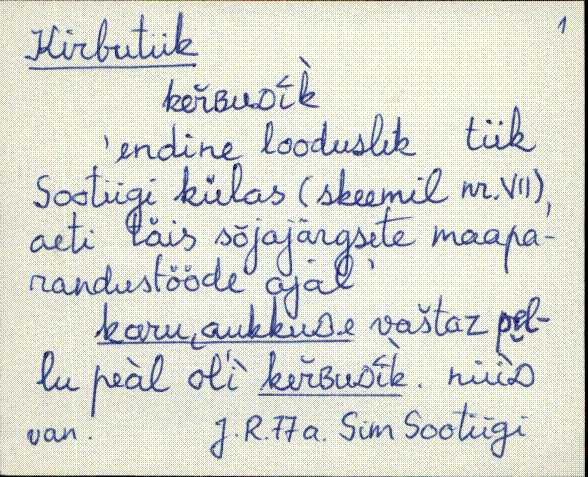 1
Kirbutiik
kеřʙuᴅìk
'endine looduslik tiik
Sootiigi külas (skeemil nr. VII),
aeti täis sõjajärgsete maapa-
randustööde ajal'
karu, aukkuʙᴇ vaštaz
lu peàl ol'ì kеřʙuᴅìk. nüüᴅ
van. J.R. 77 a. Sim Sootiigi